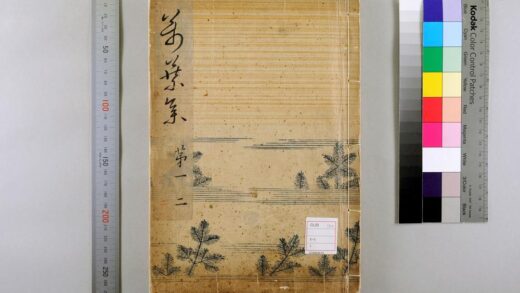 萬葉集
第一 二
50
100
150
200
250
Kodak Color Control Patches
Blue
Cyan
Green
Yellow
Red
Magenta
White
3/Color
Black